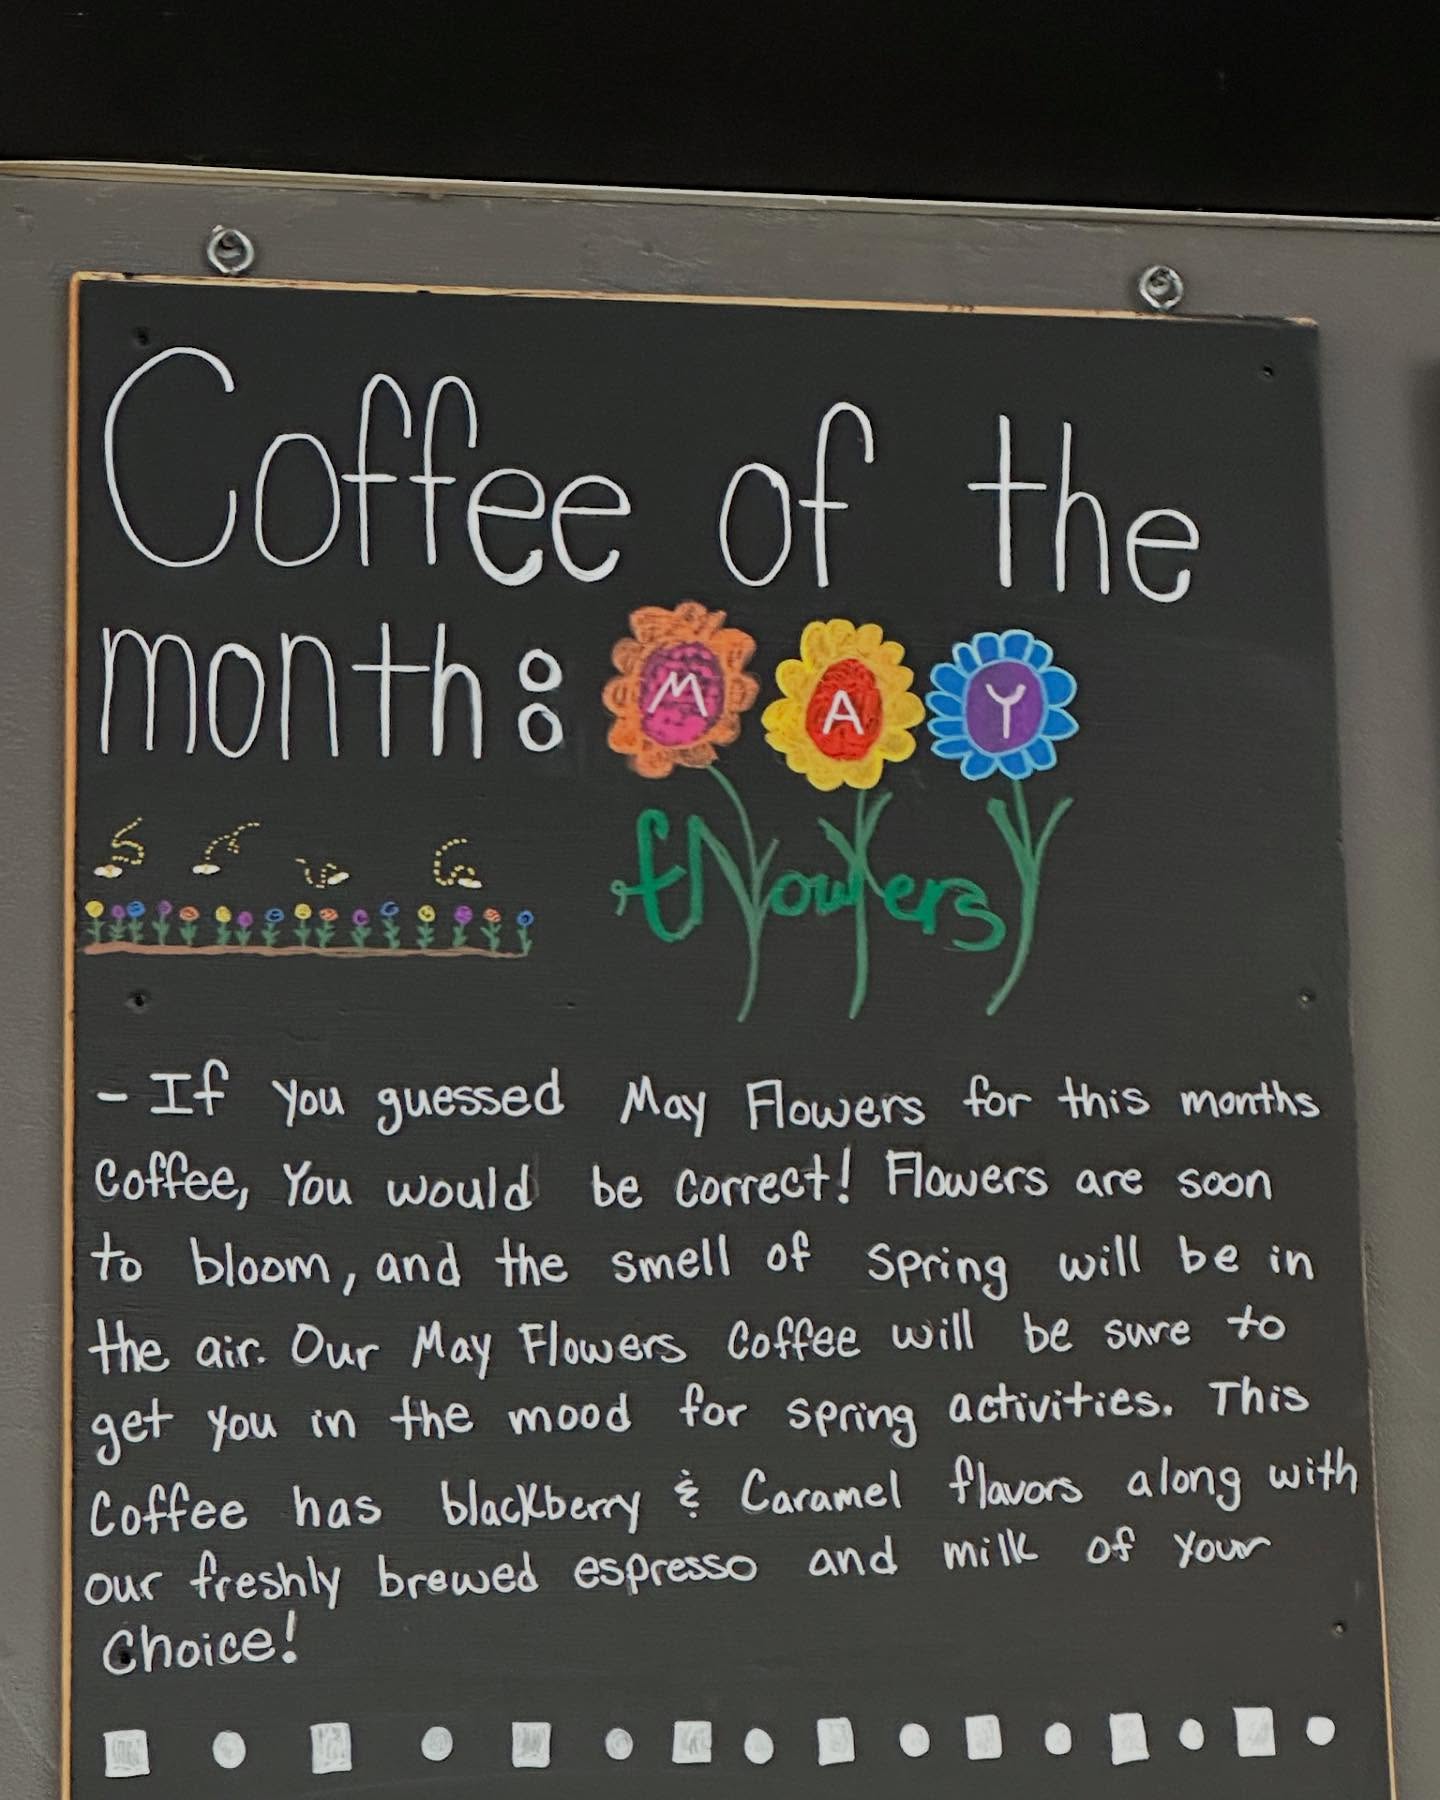 Coffee of the
month: MAY
flowers
- If you guessed May Flowers for this months
Coffee, You would be Correct! Flowers are soon
to bloom, and the smell of spring will be in
the air. Our May Flowers Coffee will be sure to
get you in the mood for spring activities. This
Coffee has blackberry & Caramel flavors along with
our freshly brewed espresso and milk of your
Choice!